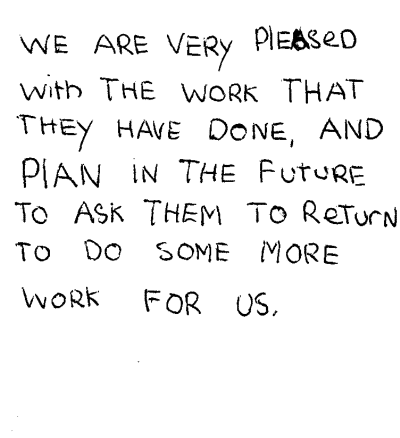 WE ARE VERY PlEASeD
with THE WORK THAT
THEy HAVE DONE, AND
PlAN iN THE FutuRE
TO ASK THEM TO ReTurN
TO DO SOME MORE
WORK FOR US.